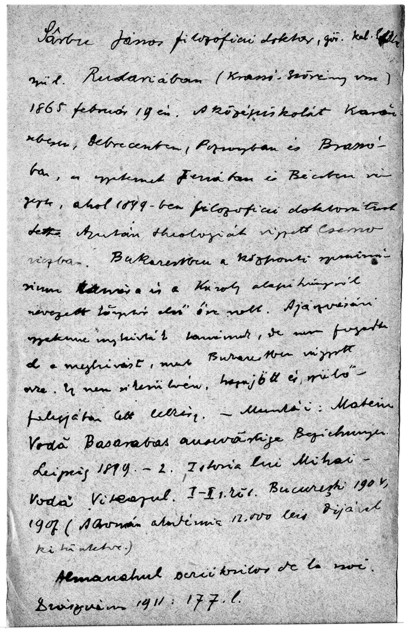 Sârbu János filozofiai doktor, gör. kel. lelkész
szül. Rudariában (Krassó-Szörény vm)
1865 február 19 én. A középiskolát Karán
sebesen, Debrecenben, Pozsonyban és Brassó-
ban, az egyetemet Jenában és Bécsben vé
gezte, ahol 1899-ben filozofiai doktorátust
tett. Azután theologiát végzett Cserno
viczban. Bukarestben a központi szeminá-
rium tanára és a Károly alapítványról
nevezett könyvtár első őre volt. A jászvásári
egyetemre meghívták tanárnak, de nem fogadta
el a meghívást, mert Bukarestben végzett
volna. Ez nem sikerülvén, hazajött és szülő-
falujában lett lelkész. — Munkái: Mateiu
Vodă Basarabas auswärtige Beziehungen
Leipzig 1899. – 2. Istoria lui Mihai-
Vodă Viteazul. I-II rész. Bucureşti 1904,
1907 (A román akadémia 12.000 leis díjával
kitüntetve.)
Almanahul scriitorilor de la noi.
Szászváros 1911: 177. l.